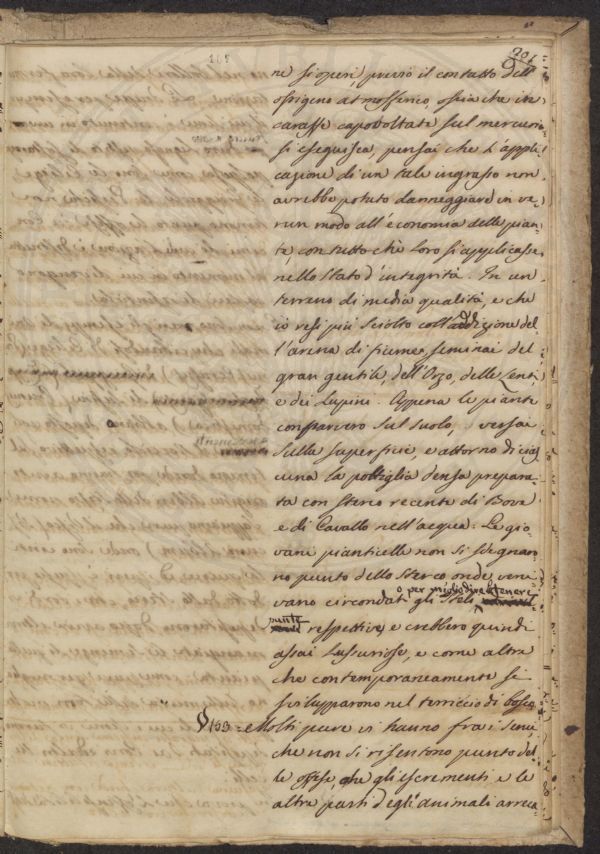 201
ne si operi, presso il contatto dell'
ossigeno atmosferico, ossia che in
carasse capovoltate sul mercurio
si eseguisca, pensai che l'appli
cazione di un tale ingrasso non
avrebbe potuto danneggiare in ve,
run modo all'economia delle pian=
te, con tutto chè loro si applicasse
nello stato d'integrità. In un
terreno di media qualità, e che
io resi più sciolto coll'addizione del
l'arena di fiume seminai del
gran gentile, dell'Orzo, delle Lenti
e dei Lupini. Appena le piante
comparvero sul suolo, versai
sulla superficie, e attorno di cias
cuna la poltiglia densa prepara=
ta con sterco recente di Bove
e di Cavallo nell'acqua. Le gio=
vani pianticelle non si sdegnaro
no punto dello sterco, onde veni
o per meglio dire le tenere
vano circondati gli steli
piante
rispettive, e crebbero quindi
assai lussuriose, e come altre
che contemporaneamente si
svilupparono nel terriccio di bosco.
§ 153 = Molti pure vi hanno fra i semi
che non si risentono punto del
le offese, che gli escrementi e le
altre parti degli animali arreca=